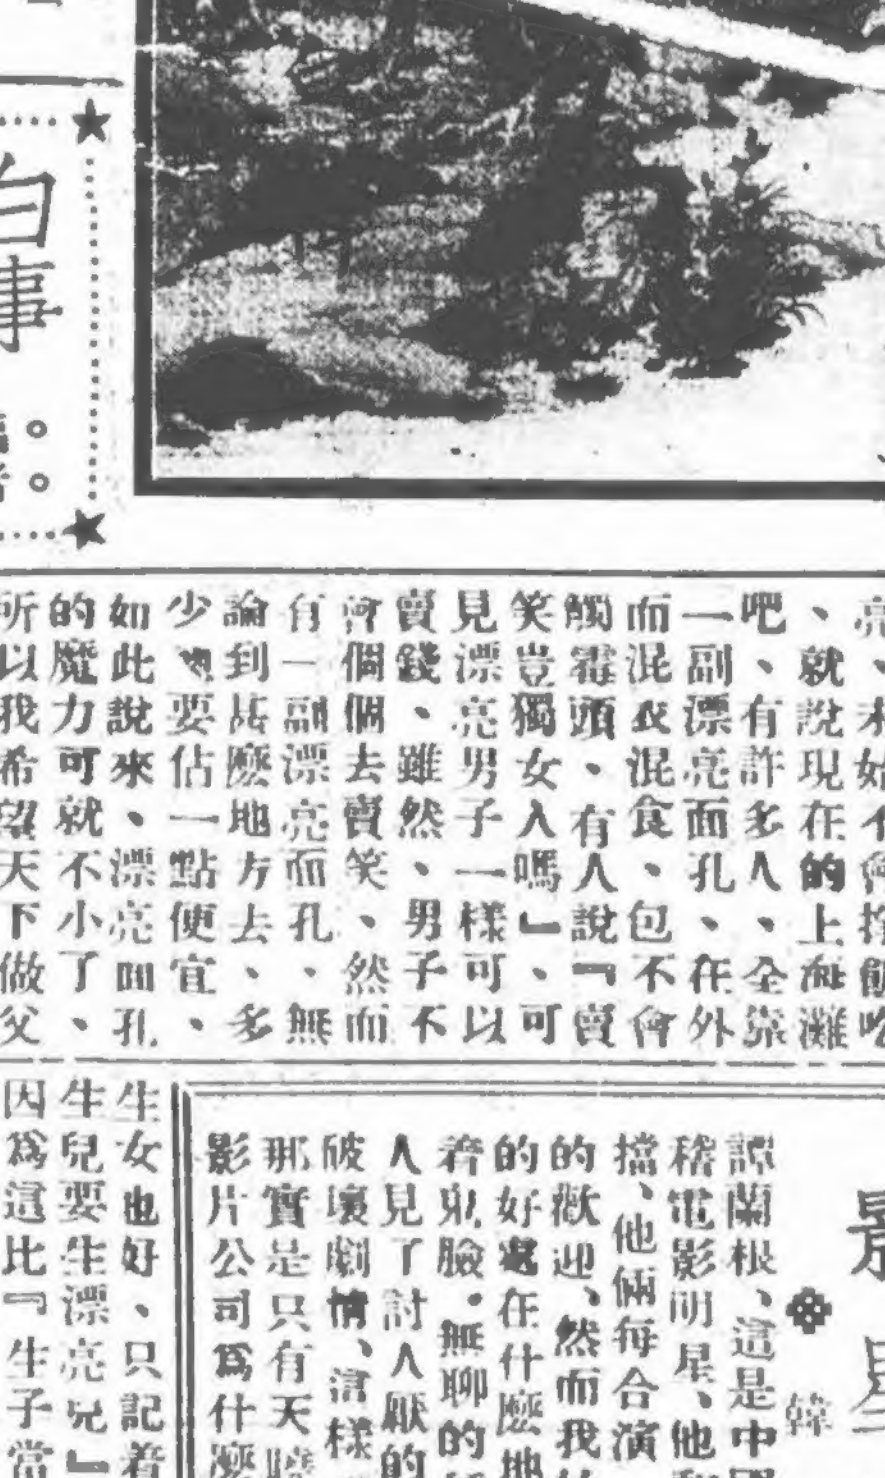 白事
亮、未始不會
、就說現在的上海灘
吧、有許多人、全靠
一副漂亮面孔、在外
而混衣混食、包不會
觸霉頭、有人說『賣
笑豈獨女人嗎』、可
見漂亮男子一樣可以
賣錢、雖然、男子不
會個個去賣笑、然而
有一副漂亮面孔、無
論到甚麼地方去、多
少要佔一點便宜、
如此說來、漂亮面孔
的魔力可就不小了、
所以我希望天下做父
生女也好、只記着
生兒要生漂亮兒』
因爲這比『生子當
韓
譚蘭根、這是中國
稽電影明星、他
擋、他倆每合演
的歡迎、然而我
的好處在什麼地
着鬼臉、無聊的
人見了討人厭的
破壞劇情、這樣
那實是只有天曉
影片公司爲什麼